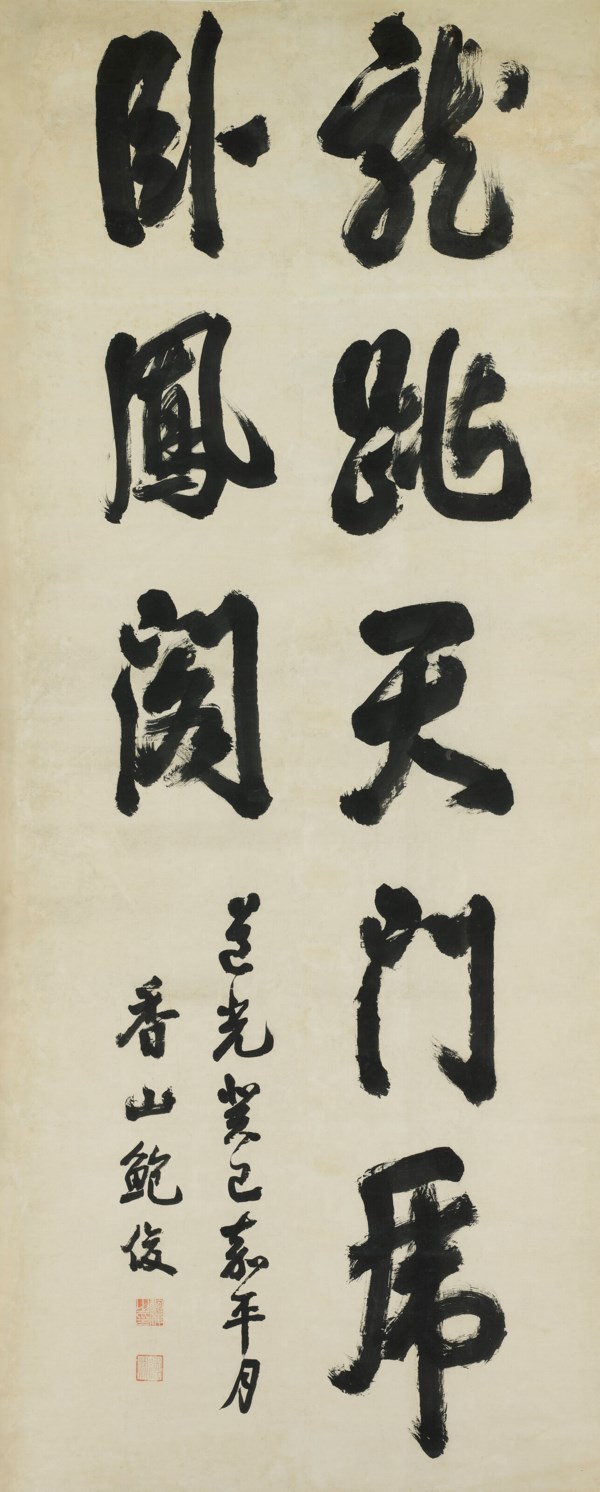 龍跳天門虎
卧鳳閣
道光癸巳嘉平月
香山鮑俊